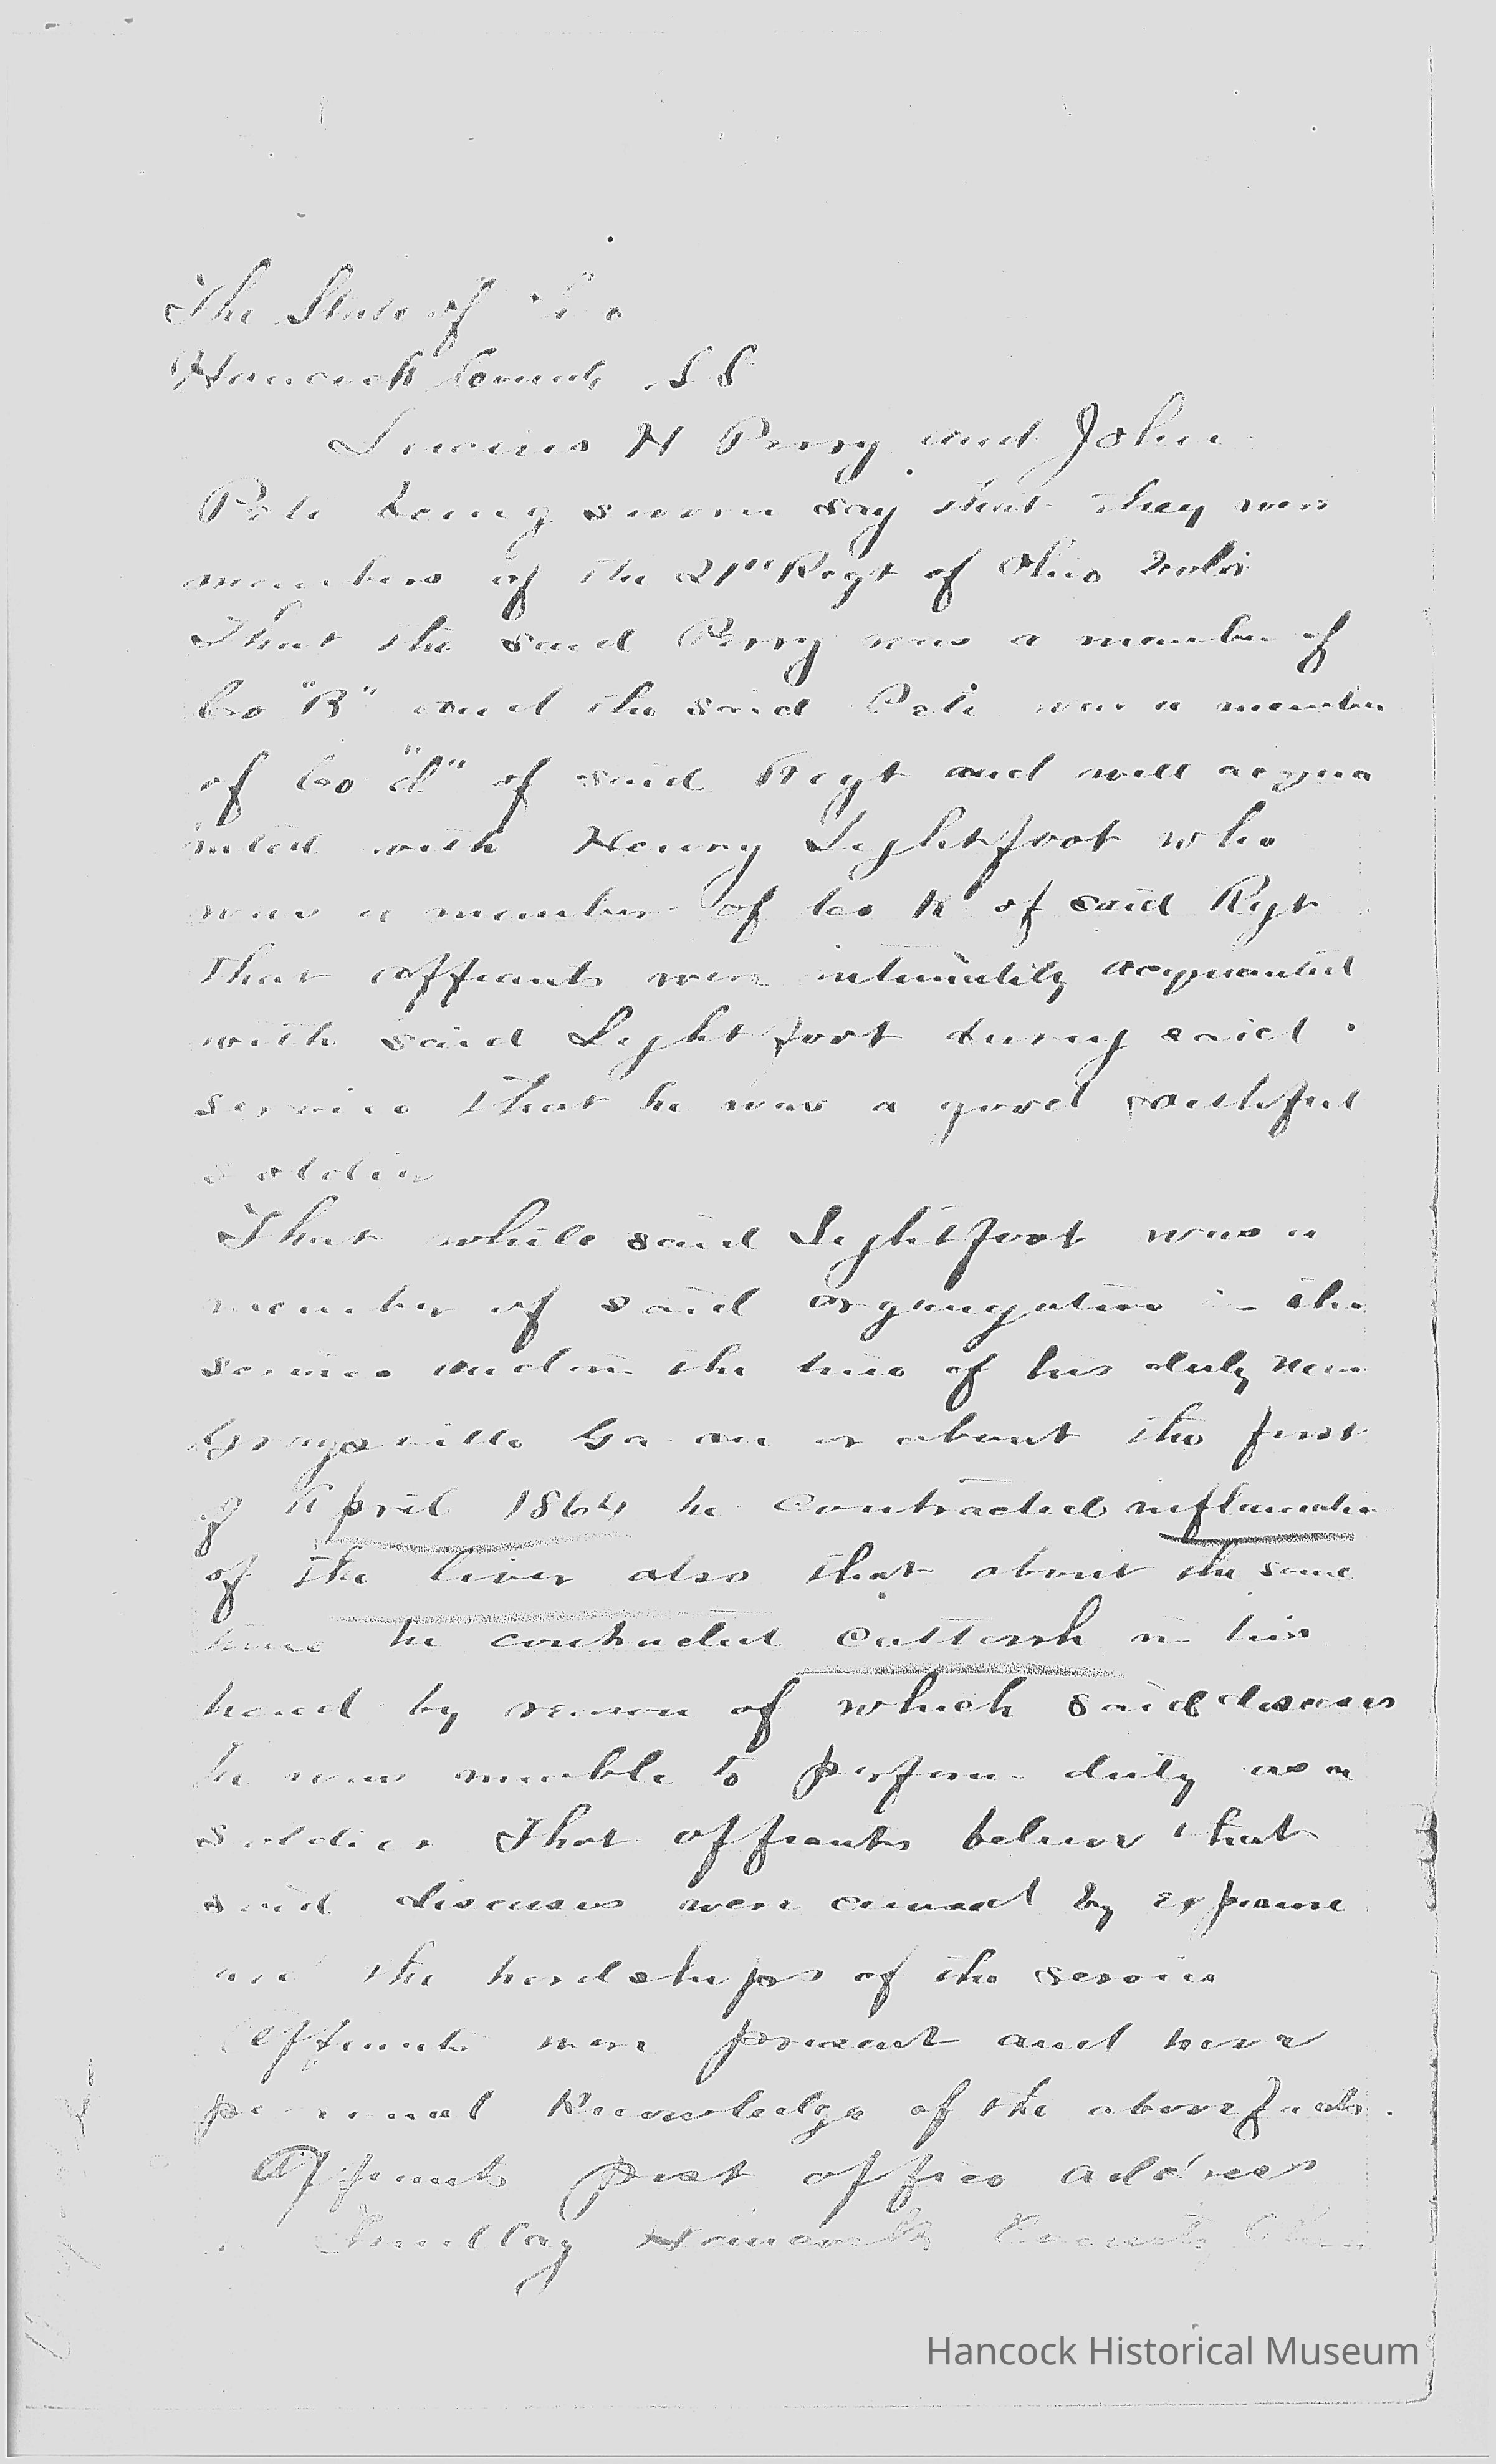 The State of
Hancock County SS
Lucius H Perry and John
Pole being sworn say that they were
members of the 21st Regt of Ohio Vols
That the said Perry was a member of
Co "B" and the said Pole was a member
of Co "d" of said Regt and well acqua
inted with Henry Lightfoot who
was a member of Co K of said Regt
That affiants were intimately acquainted
with said Lightfoot during said
service That he was a good faithful
soldier
That while said Lightfoot was a
member of said organization in the
service and in the line of his duty near
Graysville Ga on or about the first
of April 1864 he contracted inflamation
of the liver also that about the same
time he contracted Cattarrh in his
head by reason of which said diseases
he was unable to perform duty as a
soldier That affiants believe that
said diseases were caused by exposure
and the hardships of the service
Affiants were present and have
personal Knowledge of the above facts.
Affiants post office address
Findlay Hancock County Ohio
Hancock Historical Museum